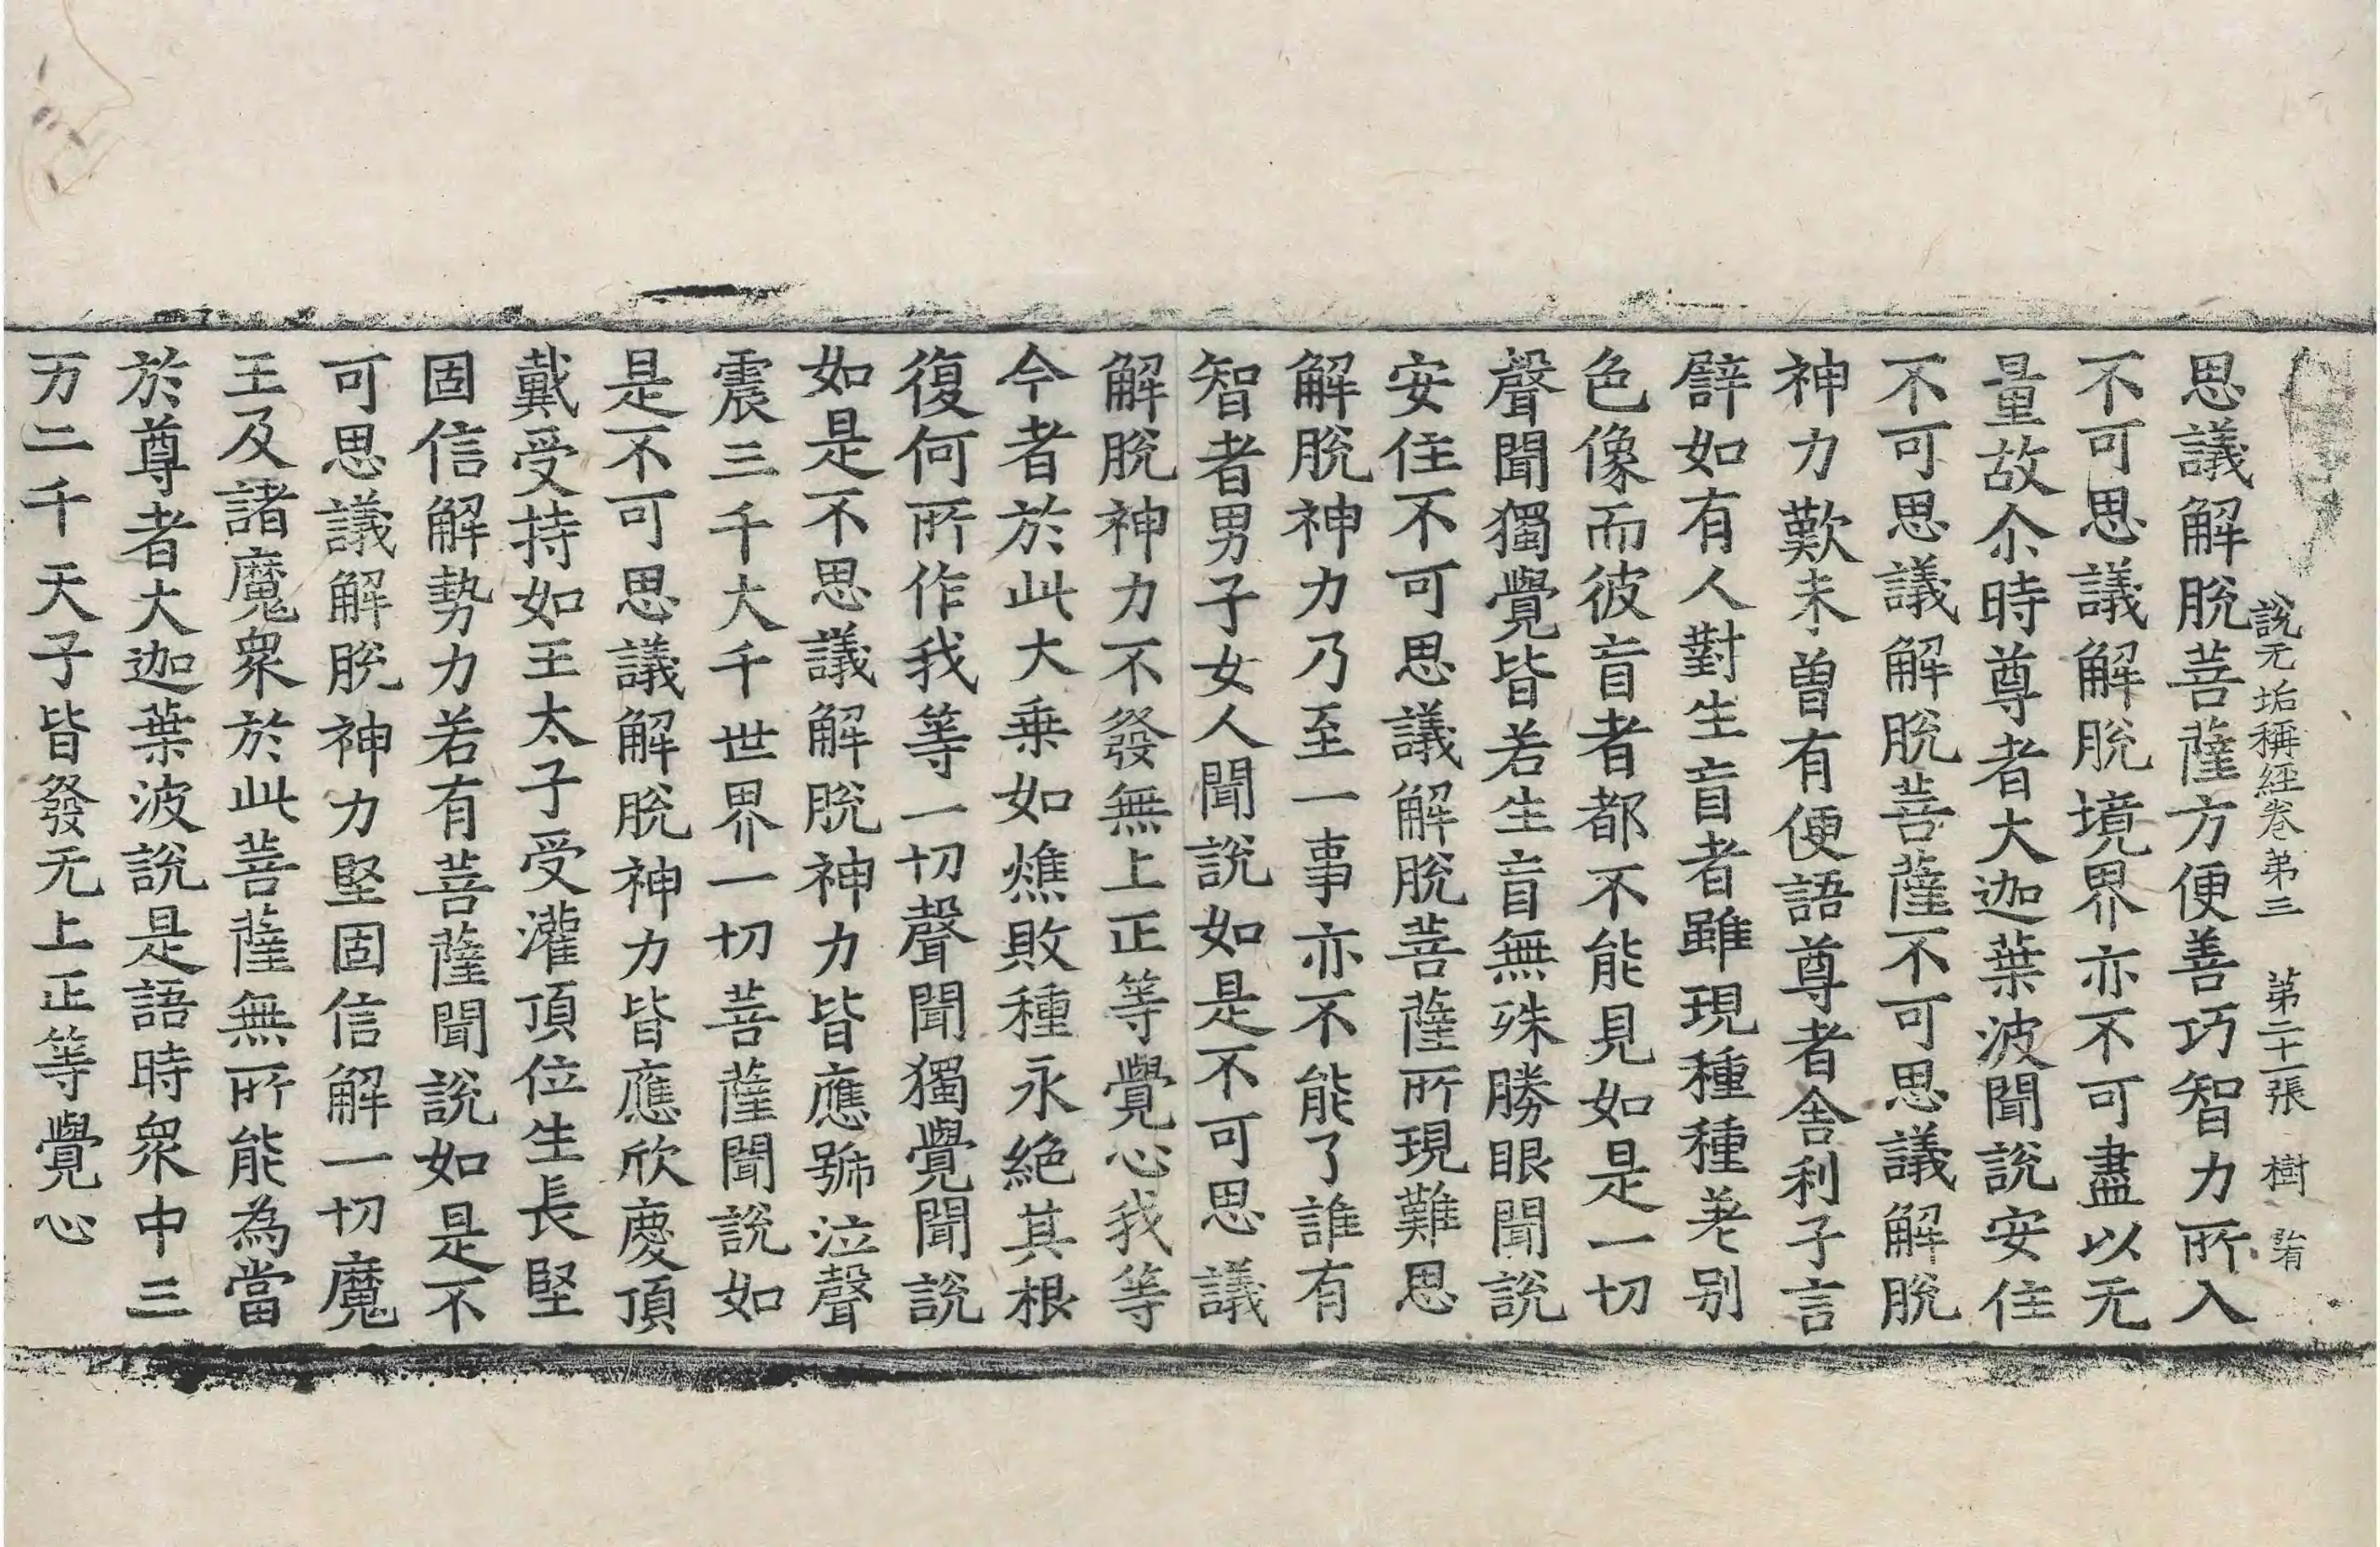 說无垢稱經卷第三 第二十一張 樹
思議解脫菩薩方便善巧智力所入
不可思議解脫境界亦不可盡以无
量故尒時尊者大迦葉波聞說安住
不可思議解脫菩薩不可思議解脫
神力歎未曾有便語尊者舍利子言
譬如有人對生盲者雖現種種差別
色像而彼盲者都不能見如是一切
聲聞獨覺皆若生盲無殊勝眼聞說
安住不可思議解脫菩薩所現難思
解脫神力乃至一事亦不能了誰有
智者男子女人聞說如是不可思議
解脫神力不發無上正等覺心我等
今者於此大乘如燋敗種永絕其根
復何所作我等一切聲聞獨覺聞說
如是不思議解脫神力皆應號泣聲
震三千大千世界一切菩薩聞說如
是不可思議解脫神力皆應欣慶頂
戴受持如王太子受灌頂位生長堅
固信解勢力若有菩薩聞說如是不
可思議解脫神力堅固信解一切魔
王及諸魔眾於此菩薩無所能為當
於尊者大迦葉波說是語時眾中三
万二千天子皆發无上正等覺心